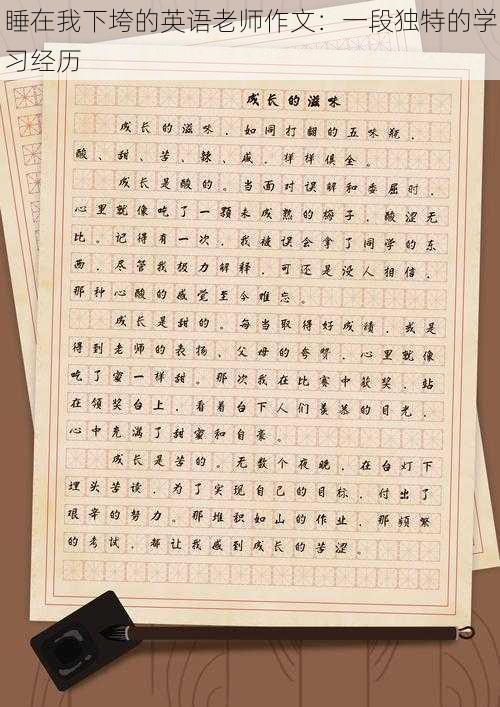 睡在我下垮的英语老师作文：一段独特的学
习经历
成长的滋味
成长的滋味，如同打翻的五味瓶，
酸、甜、苦、辣、咸，样样俱全。
成长是酸的。当面对误解和委屈时，
心里就像吃了一颗未成熟的梅子，酸涩无
比。记得有一次，我被误会拿了同学的东
西，尽管我极力解释，可还是没人相信，
那种心酸的感觉至今难忘。
成长是甜的。每当取得好成绩，或是
得到老师的表扬、父母的夸赞，心里就像
吃了蜜一样甜。那次我在比赛中获奖，站
在领奖台上，看着台下人们羡慕的目光，
心中充满了甜蜜和自豪。
成长是苦的。无数个夜晚，在台灯下
埋头苦读，为了实现自己的目标，付出了
艰辛的努力。那堆积如山的作业，那频繁
的考试，都让我感到成长的苦涩。